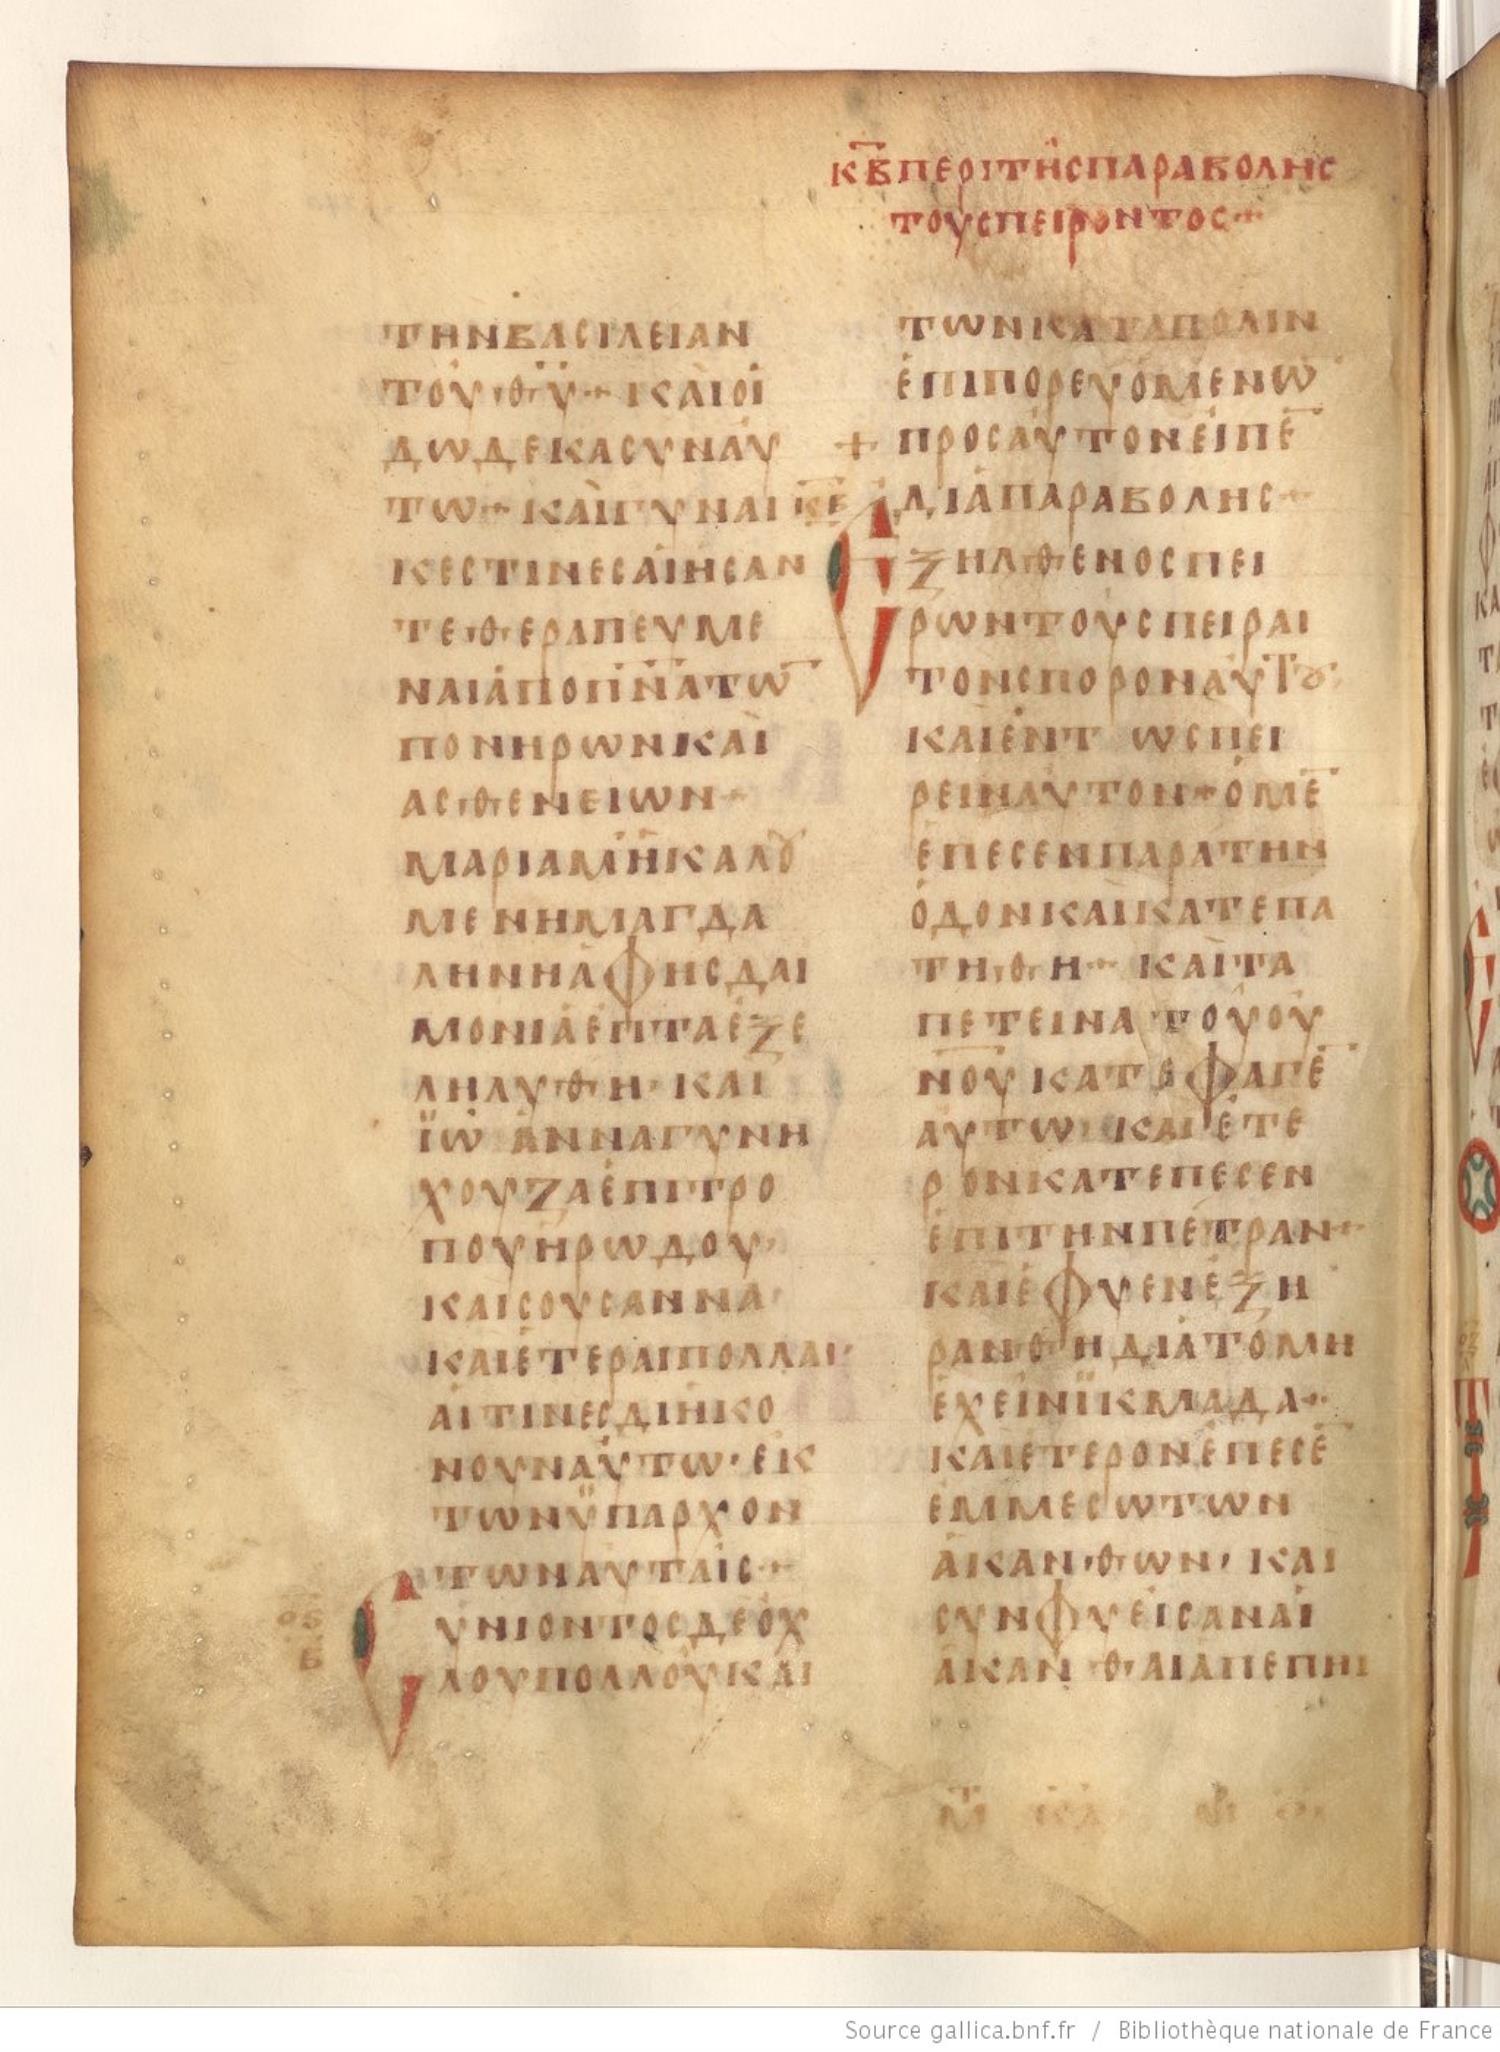 ΚΒ ΠΕΡΙΤΗΣΠΑΡΑΒΟΛΗΣ
ΤΟΥΣΠΕΙΡΟΝΤΟΣ
ΤΗΝΒΑΣΙΛΕΙΑΝ
ΤΟΥΘΥ ΚΑΙΟΙ
ΔΩΔΕΚΑΣΥΝΑΥ
ΤΩ ΚΑΙΓΥΝΑΙ
ΚΕΣΤΙΝΕΣΑΙΗΣΑΝ
ΤΕΘΕΡΑΠΕΥΜΕ
ΝΑΙΑΠΟΠΝΑΤΩ̅
ΠΟΝΗΡΩΝΚΑΙ
ΑΣΘΕΝΕΙΩΝ
ΜΑΡΙΑΜΗΚΑΛȢ
ΜΕΝΗΜΑΓΔΑ
ΛΗΝΗΑΦΗΣΔΑΙ
ΜΟΝΙΑΕΠΤΑΕΞΕ
ΛΗΛΥΘΗ· ΚΑΙ
ΪΩΑΝΝΑΓΥΝΗ
ΧΟΥΖΑΕΠΙΤΡΟ
ΠΟΥΗΡΩΔΟΥ
ΚΑΙΣΟΥΣΑΝΝΑ·
ΚΑΙΕΤΕΡΑΙΠΟΛΛΑΙ·
ΑΙΤΙΝΕΣΔΙΗΚΟ
ΝΟΥΝΑΥΤΩ· ΕΚ
ΤΩΝΫΠΑΡΧΟΝ
ΤΩΝΑΥΤΑΙΣ
ΣΥΝΙΟΝΤΟΣΔΕΟΧ
ΛΟΥΠΟΛΛΟΥΚΑΙ
ΤΩΝΚΑΤΑΠΟΛΙΝ
ΕΠΙΠΟΡΕΥΟΜΕΝΩ̅
+ ΠΡΟΣΑΥΤΟΝΕΙΠΕ̅
ΚΒ ΔΙΑΠΑΡΑΒΟΛΗΣ
ΕΞΗΛΘΕΝΟΣΠΕΙ
ΡΩΝΤΟΥΣΠΕΙΡΑΙ
ΤΟΝΣΠΟΡΟΝΑΥΤȢ·
ΚΑΙΕΝΤΩΣΠΕΙ
ΡΕΙΝΑΥΤΟΝ ΟΜΕ̅
ΕΠΕΣΕΝΠΑΡΑΤΗΝ
ΟΔΟΝΚΑΙΚΑΤΕΠΑ
ΤΗΘΗ ΚΑΙΤΑ
ΠΕΤΕΙΝΑΤΟΥΟΥ
ΝΟΥΚΑΤΕΦΑΓΕ̅
ΑΥΤΩ ΚΑΙΕΤΕ
ΡΟΝΚΑΤΕΠΕΣΕΝ
ΕΠΙΤΗΝΠΕΤΡΑΝ
ΚΑΙΕΦΥΕΝΕΞΗ
ΡΑΝΘΗΔΙΑΤΟΜΗ
ΕΧΕΙΝΪΚΜΑΔΑ
ΚΑΙΕΤΕΡΟΝΕΠΕΣΕ̅
ΕΜΜΕΣΩΤΩΝ
ΑΚΑΝΘΩΝ· ΚΑΙ
ΣΥΝΦΥΕΙΣΑΝΑΙ
ΑΚΑΝΘΑΙΑΠΕΠΝΙ
Source gallica.bnf.fr / Bibliothèque nationale de France